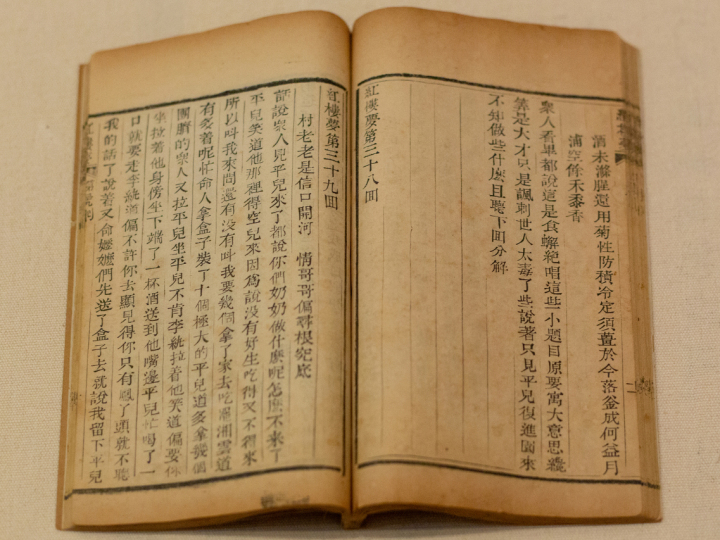 酒未滌腥還用菊性防積冷定須薑於今落釜成何益月
浦空餘禾黍香
衆人看畢都說這是食蠏絶唱這些小題目原要寓大意思纔
算是大才只是諷刺世人太毒了些說着只見平兒復進園來
不知做些什庅且聴下囬分解
紅樓夢第三十八囬
紅樓夢第三十九囬
村老老是信口開河 情哥哥偏尋根究底
話說衆人見平兒來了都說你們奶奶做什庅呢怎庅不来了
平兒笑道他那裡得空兒來因爲說没有好生吃得又不得來
所以叫我來問還有没有叫我要幾個拿了家去吃罷湘雲道
有多着呢忙命人拿盒子裝了十個極大的平兒道多拿幾個
團臍的衆人又拉平兒坐平兒不肯李紈拉着他笑道偏要你
坐拉着他身傍坐下端了一杯酒送到他嘴邊平兒忙喝了一
口就要走李紈道偏不許你去顯見得你只有鳳丫頭就不聴
我的話了說着又命嬷嬷們先送了盒子去就說我留下平兒